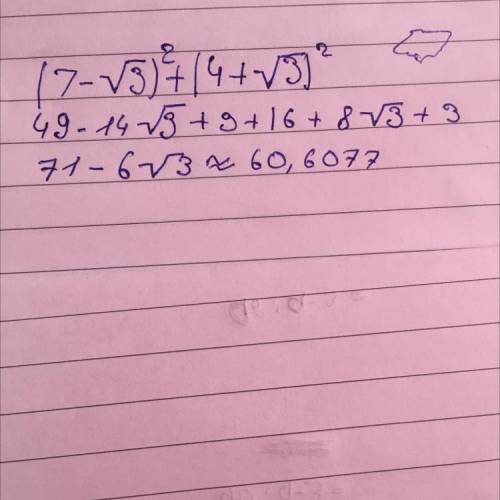 (7-√3)²+(4+√3)²
49-14√3+3+16+8√3+3
71-6√3≈60,6077